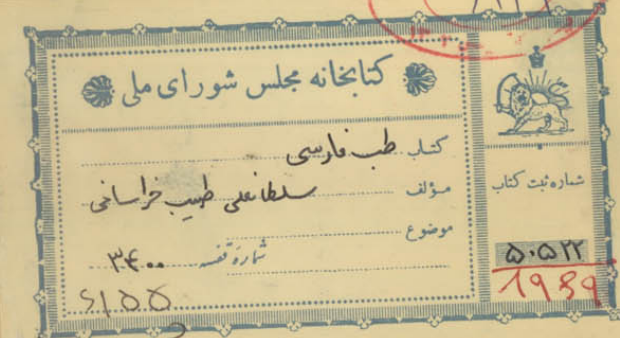 کتابخانه مجلس شورای ملی
کتاب طب فارسی
مؤلف سلطانعلی طبیب خراسانی
موضوع
شماره قفسه ۳۴۰۰
6155
شماره ثبت کتاب
۵۰۵۲۲
1989